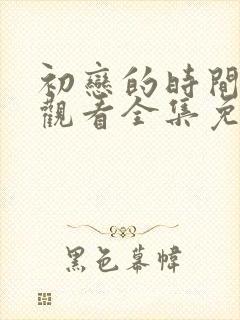 初戀的時間
觀看全集免
黑色幕幃